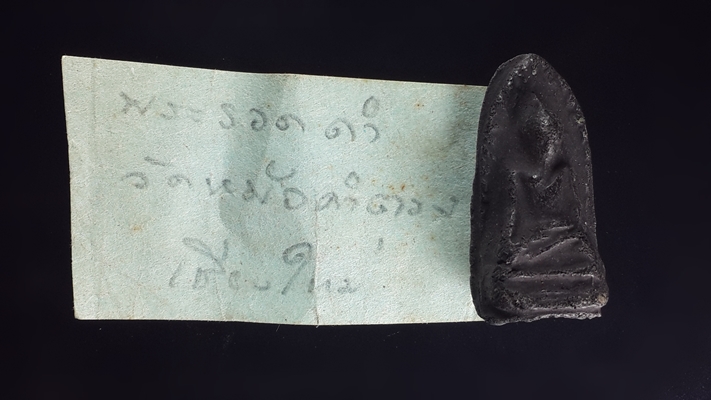 พระรอดดำ
วัดหม้อคำตวง
เชียงใหม่